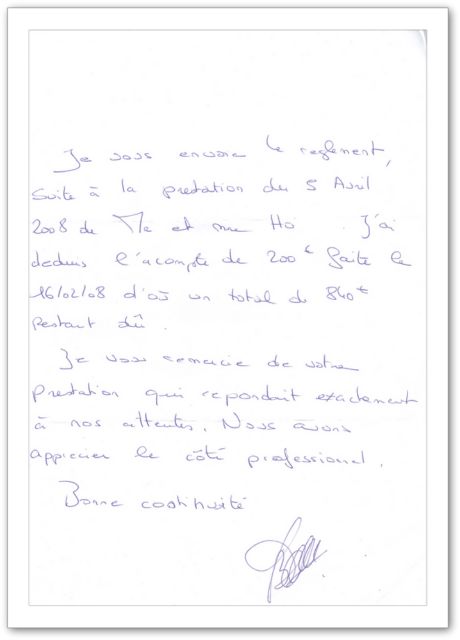 Je vous envoie le reglement,
suite à la prestation du 5 Avril
2008 de Me et mme Ho . J'ai
deduis l'acompte de 200€ faite le
16/02/08 d'où un total de 840€
restant dû.
Je vous remercie de votre
prestation qui repondait exactement
à nos attentes. Nous avons
apprecier le côté professionnel.
Bonne continuité